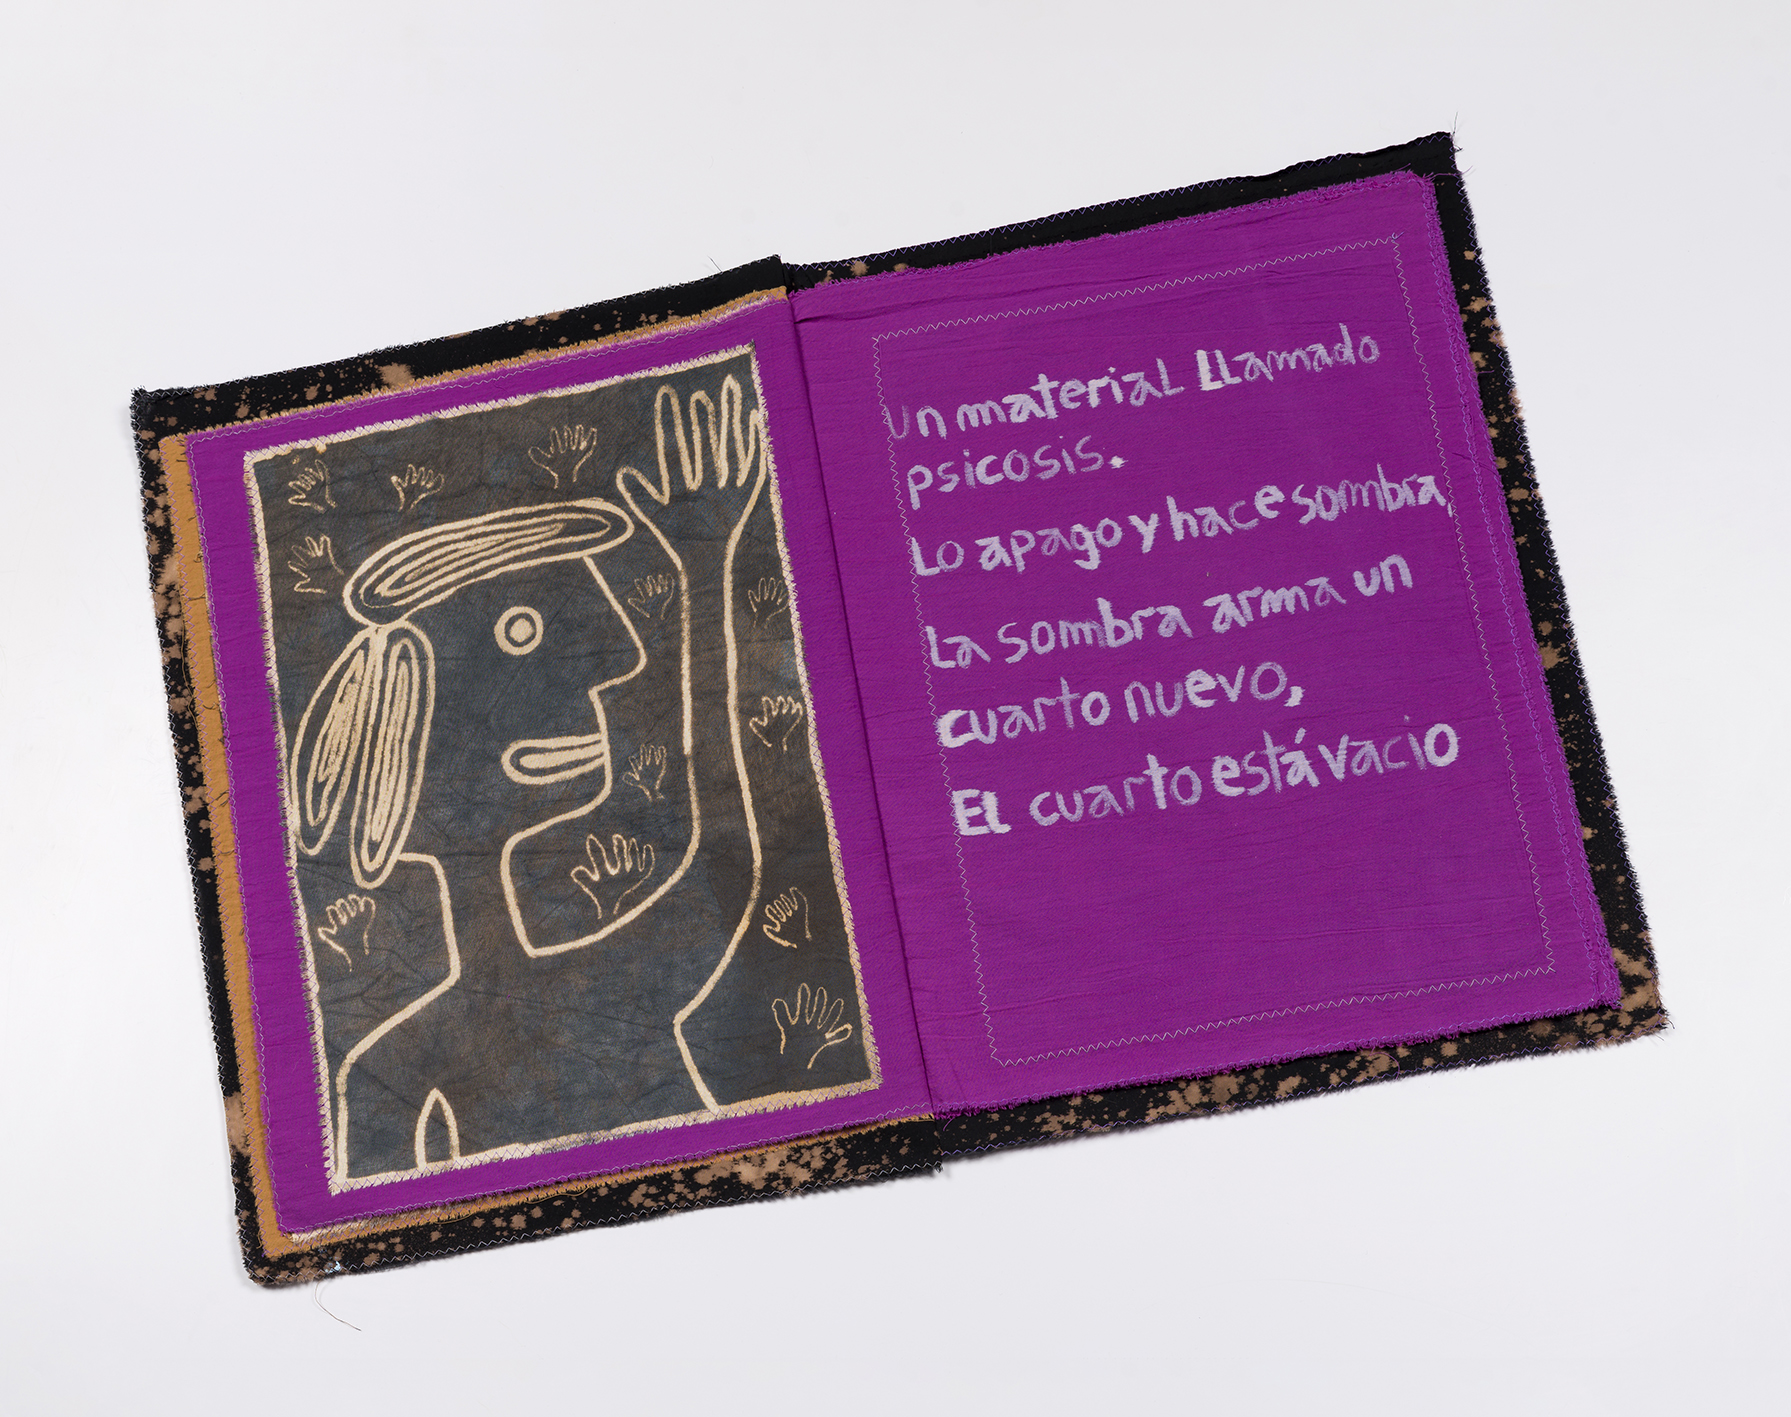 un material LLamado
psicosis.
Lo apago y hace sombra,
La sombra arma un
cuarto nuevo,
EL cuarto está vacio